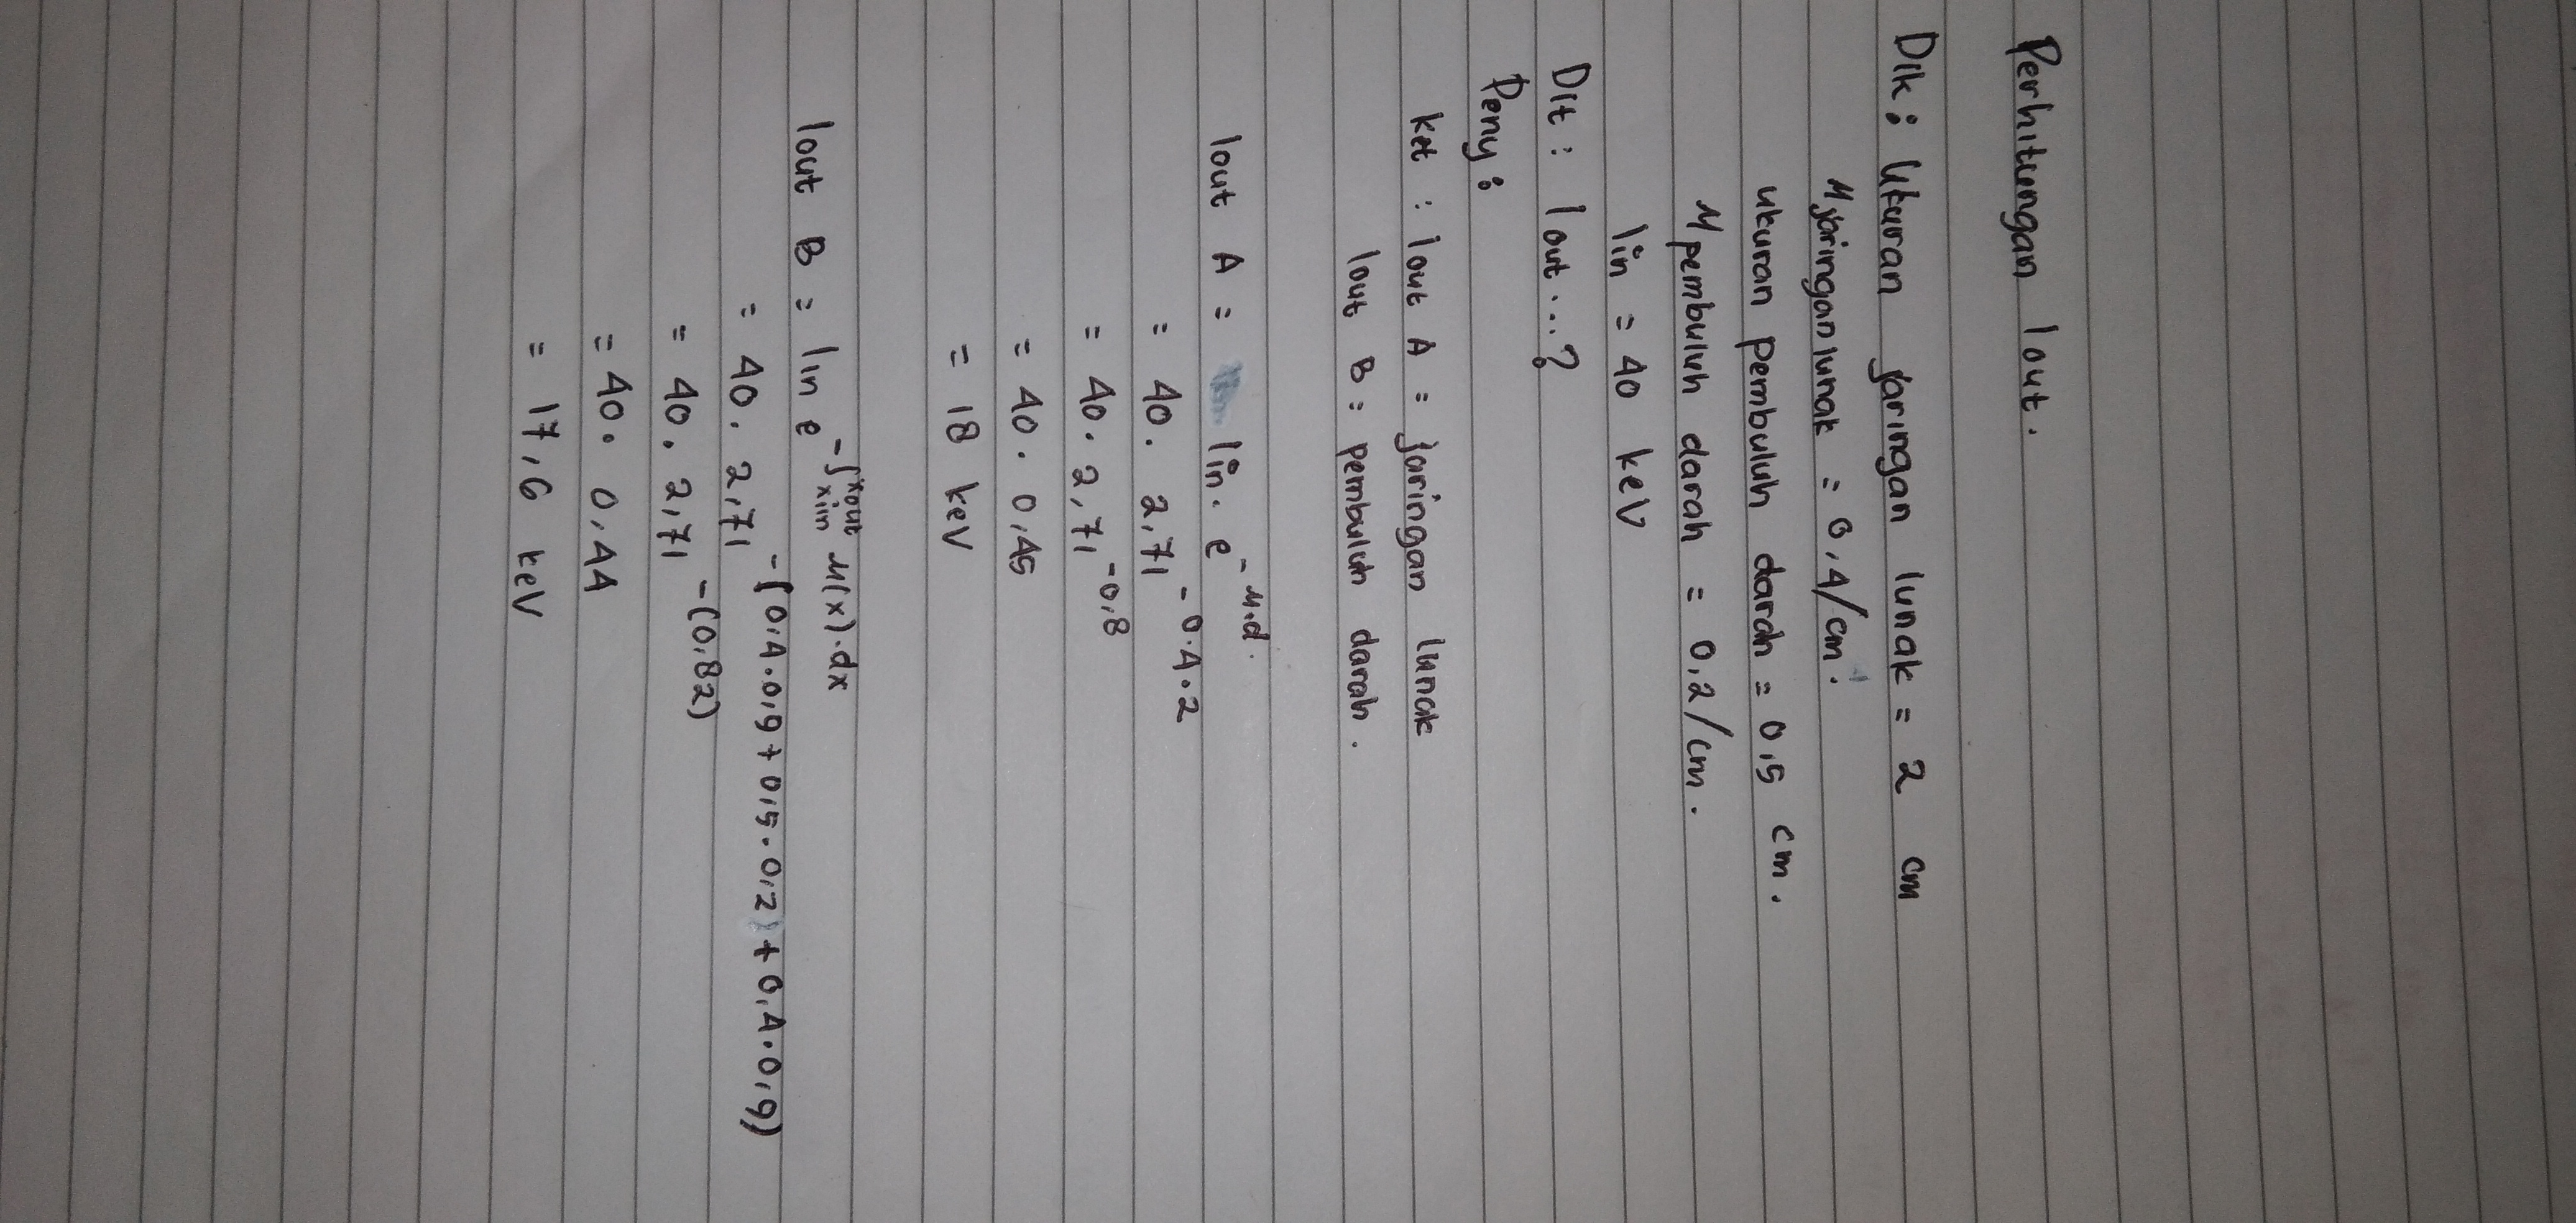 Perhitungan Iout.
Dik : Ukuran jaringan lunak = 2 cm
μ jaringan lunak = 0,4/cm.
ukuran pembuluh darah = 0,5 cm.
μ pembuluh darah = 0,2/cm.
Iin = 40 keV
Dit : Iout...?
Peny :
ket : Iout A = jaringan lunak
Iout B = pembuluh darah.
Iout A = Iin. e^-μ.d.
= 40. 2,71^-0.4.2
= 40. 2,71^-0,8
= 40. 0,45
= 18 keV
Iout B = Iin e^-∫xin^xout μ(x).dx
= 40. 2,71^-(0,4.0,9+0,5.0,2)+0,4.0,9)
= 40. 2,71^-(0,82)
= 40. 0,44
= 17,6 keV